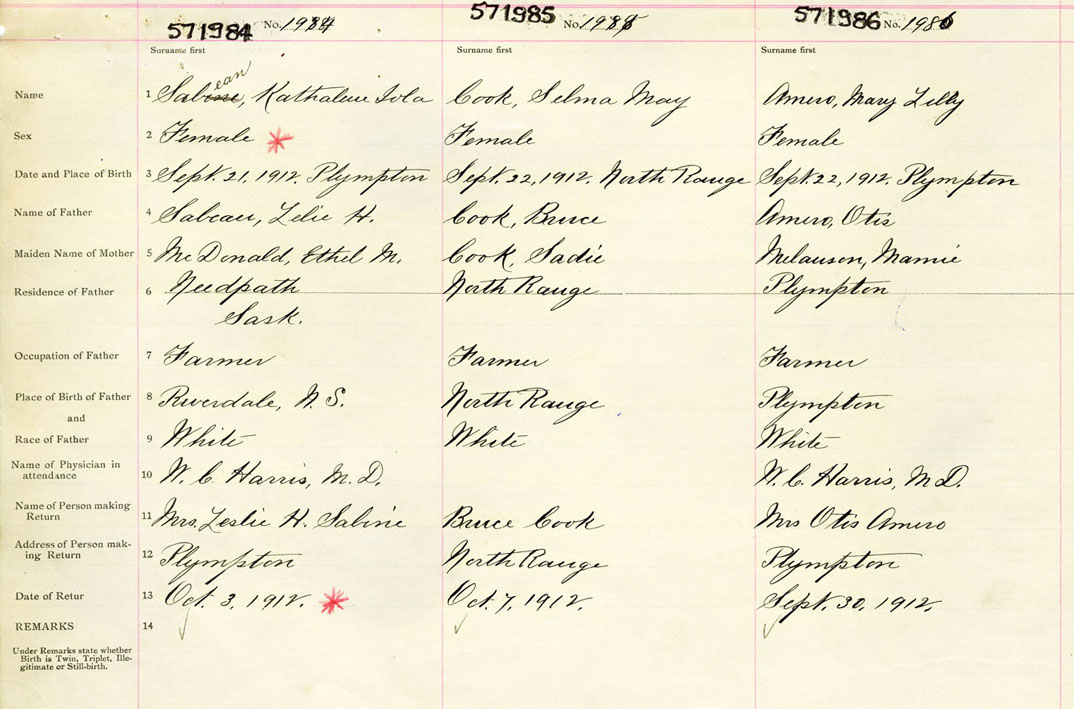 571984 No. 1984 571985 No. 1985 571986 No. 1986
Surname first Surname first Surname first
Name 1 Sabine, ean Kathaleen Iola Cook, Selma May Amero, Mary Lilly
Sex 2 Female Female Female
Date and Place of Birth 3 Sept. 21, 1912. Plympton Sept. 22, 1912. North Range Sept. 22, 1912. Plympton
Name of Father 4 Sabean, Lelie H. Cook, Bruce Amero, Otis
Maiden Name of Mother 5 McDonald, Ethel M. Cook, Sadie Melanson, Mamie
Residence of Father 6 Needpath North Range Plympton
Sask.
Occupation of Father 7 Farmer Farmer Farmer
Place of Birth of Father 8 Riverdale, N. S. North Range Plympton
and
Race of Father 9 White White White
Name of Physician in
attendance 10 W. C. Harris, M. D. W. C. Harris, M D.
Name of Person making
Return 11 Mrs. Leslie H. Sabine Bruce Cook Mrs Otis Amero
Address of Person mak-
ing Return 12 Plympton North Range Plympton
Date of Retur 13 Oct. 3, 1912. Oct. 7, 1912. Sept. 30, 1912.
REMARKS 14
Under Remarks state whether
Birth is Twin, Triplet, Ille-
gitimate or Still-birth.